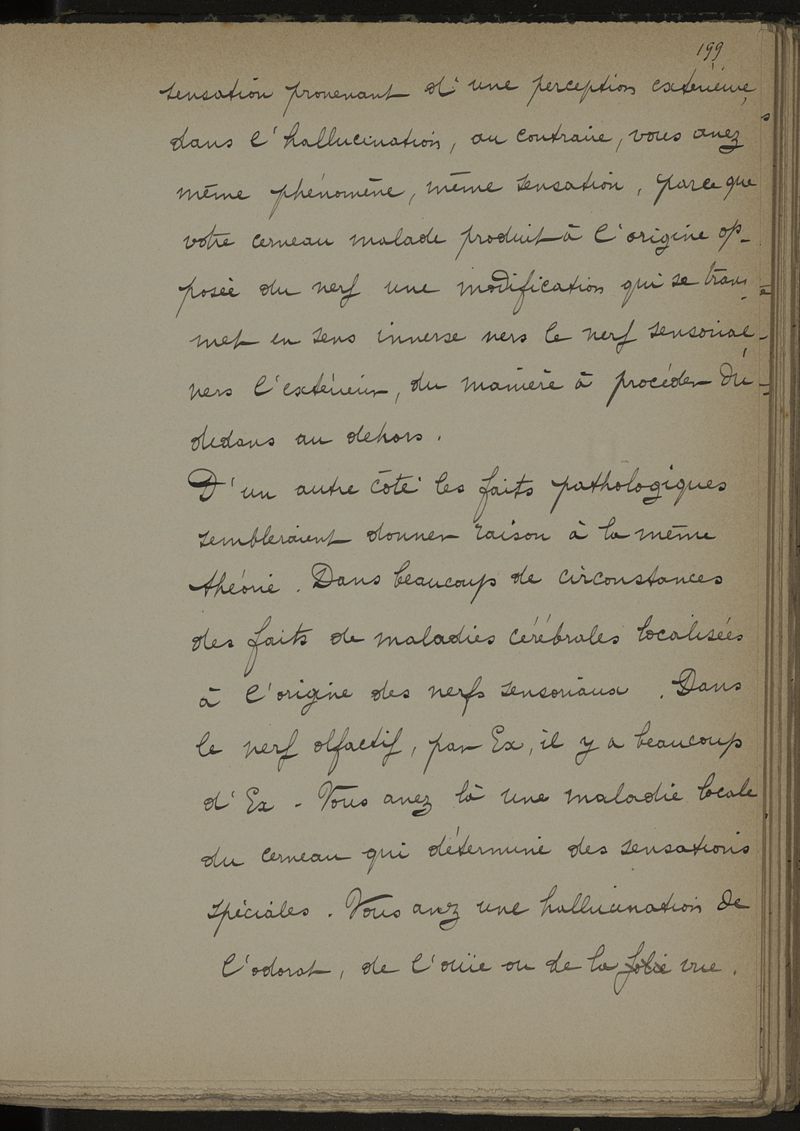 199
sensation provenant d'une perception extérieure,
dans l'hallucination, au contraire, vous avez
même phénomène, même sensation, parce que
votre cerveau malade produit à l'origine op-
posée du nerf une modification qui se trans-
met en sens inverse vers le nerf sensoriel
vers l'extérieur, du manière à procéder du
dedans au dehors.
D'un autre côté les faits pathologiques
sembleraient donner raison à la même
théorie. Dans beaucoup de circonstances
des faits de maladies cérébrales localisées
à l'origine des nerfs sensoriaux. Dans
le nerf olfactif, par Ex, il y a beaucoup
d'Ex. Vous avez là une maladie locale
du cerveau qui détermine des sensations
spéciales. Vous avez une hallucination de
l'odorat, de l'ouïe ou de la folie vue.